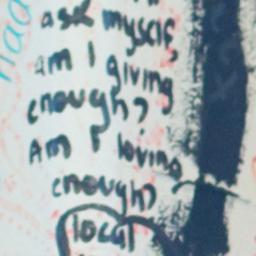 ask myself,
am I giving
enough?
Am I loving
enough?
local